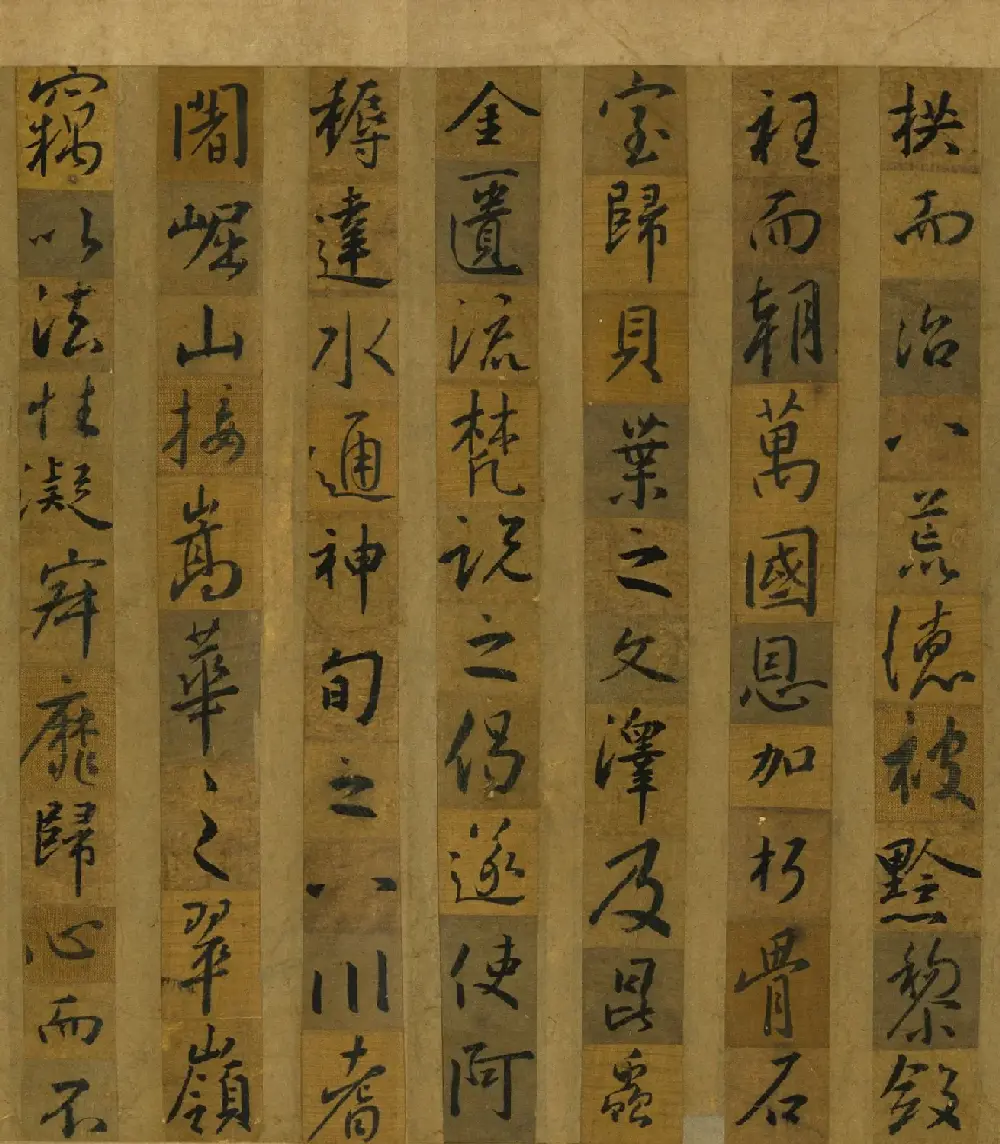 拱而治八荒德被黔黎斂
衽而朝萬國恩加朽骨石
室歸貝葉之文澤及昆蟲
金匱流梵說之偈遂使阿
耨達水通神甸之八川耆
闍崛山接嵩華之翠嶺
竊以法性凝寂靡歸心而不